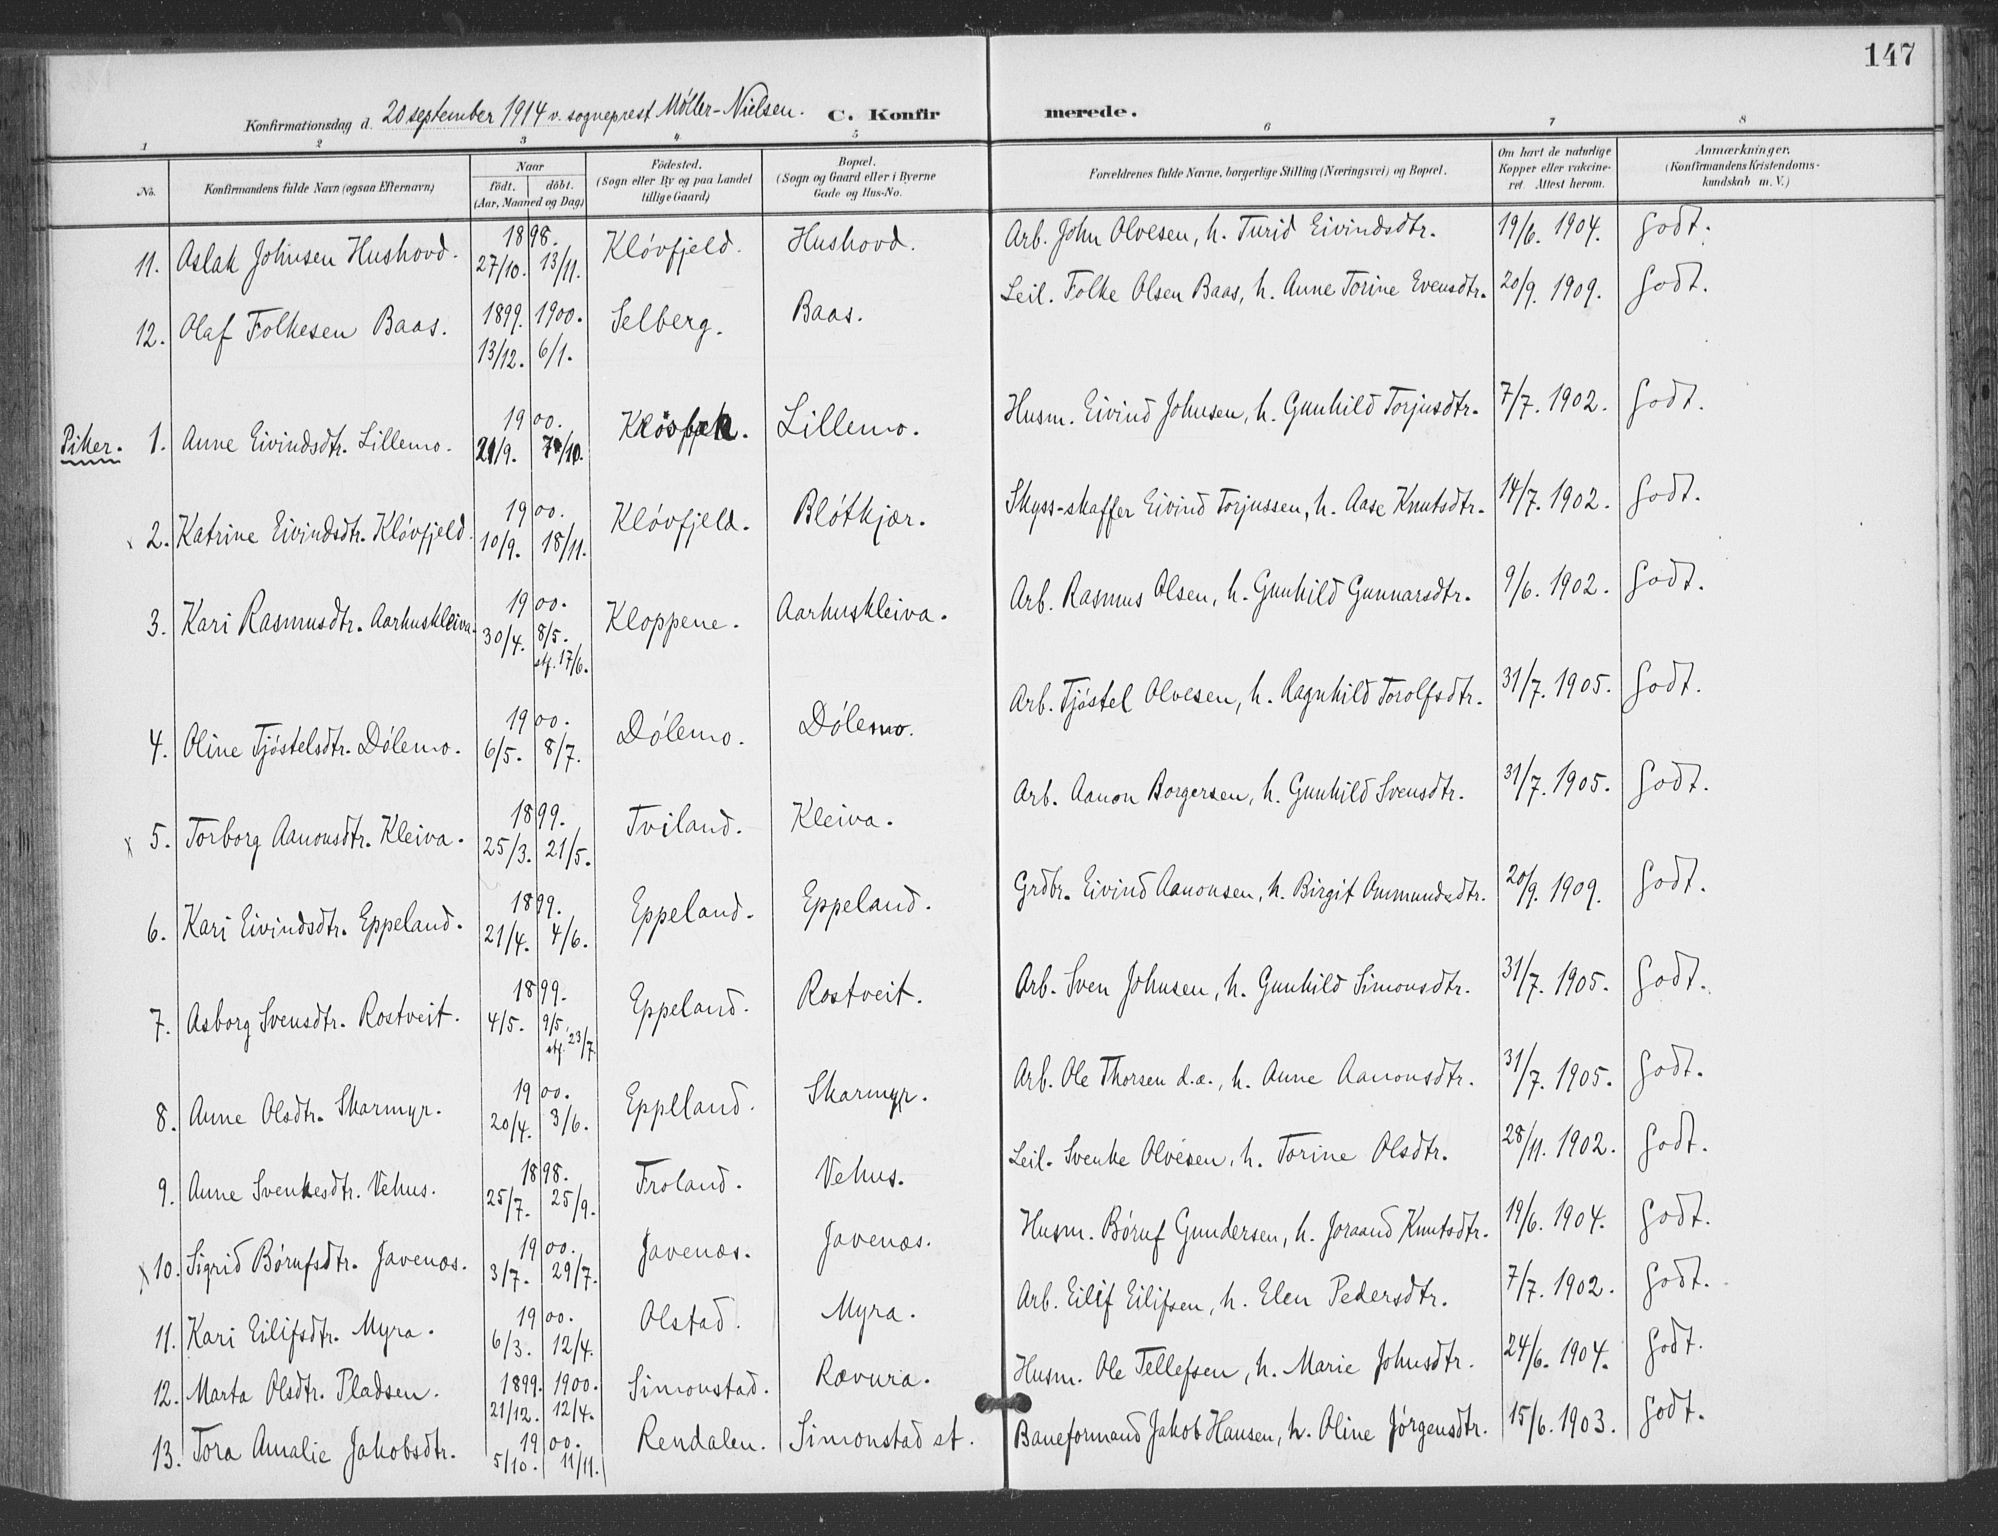 147
Konfirmationsdag d. 20 september 1914 v. sogneprest Møller-Nielsen. C. Konfirmerede.
1 2 3 4 5 6 7 8
No. Konfirmandens fulde Navn (ogsaa Efternavn) Naar født. døbt. (Aar, Maaned og Dag) Fødested. (Sogn eller By og paa Landet tillige Gaard) Bopæl. (Sogn og Gaard eller i Byerne Gade og Hus-No. Forældrenes fulde Navne, borgerlige Stilling (Næringsvei) og Bopæl. Om havt de naturlige Kopper eller vakcineret. Attest herom. Anmærkninger. (Konfirmandens Kristendomskundskab m. V.)
11. Aslak Johnsen Hushovd. 1898. 27/10. 13/11. Kløvfjeld. Hushovd. Arb. John Olvesen, h. Turid Eivindsdtr. 19/6. 1904. Godt.
12. Olaf Folkesen Baas. 1899. 13/12. 1900. 6/1. Selberg. Baas. Leil. Folke Olsen Baas, h. Anne Torine Evensdtr. 20/9. 1909. Godt.
Piker. 1. Anne Eivindsdtr. Lillemo. 1900. Lillemo. Husm. Eivind Johnsen, h. Gunhild Torjusdtr. 7/7. 1902. Godt.
x 2. Katrine Eivindsdtr. Kløvfjeld. 1900. 10/9. 18/11. Kløvfjeld. Bløtkjær. Skyss-skaffer Eivind Torjussen, h. Aase Knutsdtr. 14/7. 1902. Godt.
3. Kari Rasmusdtr. Aarhuskleiva. 1900. 30/4. 8/5. stf. 17/6. Kloppene. Aarhuskleiva. Arb. Rasmus Olsen, h. Gunhild Gunnarsdtr. 9/6. 1902. Godt.
4. Oline Tjøstelsdtr. Dølemo. 1900. 6/5. 8/7. Dølemo. Dølemo. Arb. Tjøstel Olvesen, h. Ragnhild Torolfsdtr. 31/7. 1905. Godt.
x 5. Torborg Aanonsdtr. Kleiva. 1899. 25/3. 21/5. Tviland. Kleiva. Arb. Aanon Borgersen, h. Gunhild Svensdtr. 31/7. 1905. Godt.
6. Kari Eivindsdtr. Eppeland. 1899. 21/4. 4/6. Eppeland. Eppeland. Grdbr. Eivind Aanonsen, h. Birgit Ommundsdtr. 20/9. 1909. Godt.
7. Asborg Svensdtr. Rostveit. 1899. 4/5. 9/5. stf. 23/7. Eppeland. Rostveit. Arb. Sven Johnsen, h. Gunhild Simonsdtr. 31/7. 1905. Godt.
8. Anne Olsdtr. Skarmyr. 1900. 20/4. 3/6. Eppeland. Skarmyr. Arb. Ole Thorsen d.æ., h. Anne Aanonsdtr. 31/7. 1905. Godt.
9. Anne Svenkesdtr. Vehus. 1898. 25/7. 25/9. Froland. Vehus. Leil. Svenke Olvesen, h. Torine Olsdtr. 28/11. 1902. Godt.
x 10. Sigrid Børufsdtr. Javenæs. 1900. 3/7. 29/7. Javenæs. Javenæs. Husm. Børuf Gundersen, h. Joraand Knutsdtr. 19/6. 1904. Godt.
11. Kari Eilifsdtr. Myra. 1900. 6/3. 12/4. Olstad. Myra. Arb. Eilif Eilifsen, h. Elen Pedersdtr. 7/7. 1902. Godt.
12. Marta Olsdtr. Pladsen. 1899. 21/12. 1900. 12/4. Simonstad. Rævura. Husm. Ole Tellefsen, h. Marie Johnsdtr. 24/6. 1904. Godt.
13. Tora Amalie Jakobsdtr. 1900. 5/10. 11/11. Rendalen. Simonstad st. Baneformand Jakob Hansen, h. Oline Jørgensdtr. 15/6. 1903. Godt.